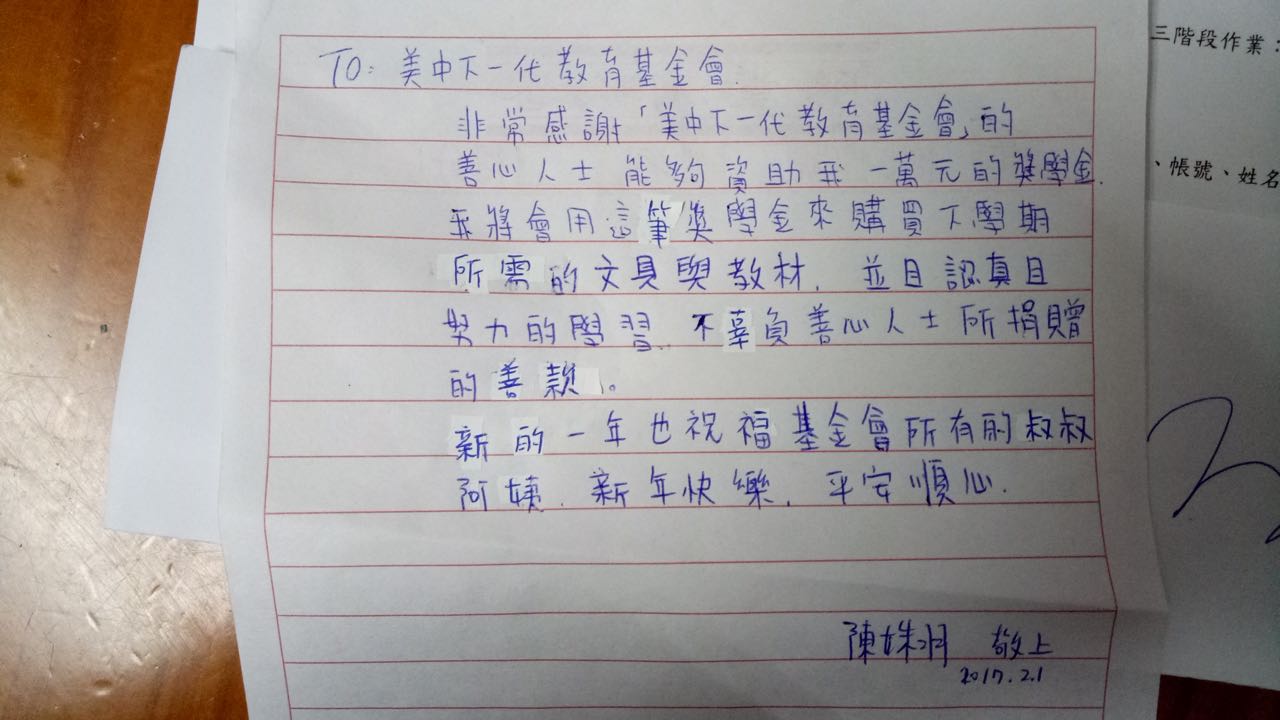 TO: 美中下一代教育基金會.
非常感謝「美中下一代教育基金會」的
善心人士能夠資助我一萬元的獎學金.
我將會用這筆獎學金來購買下學期
所需的文具與教材, 並且認真且
努力的學習, 不辜負善心人士所捐贈
的善款。
新的一年也祝福基金會所有的叔叔
阿姨, 新年快樂, 平安順心.
陳姝 敬上
2017.2.1
三階段作業:
、帳號、姓名